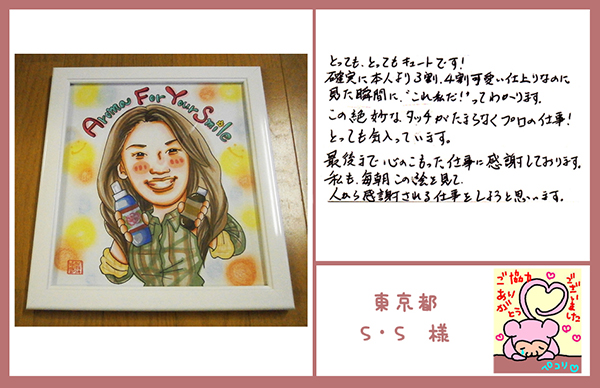 Aroma For Your Smile
とっても、とってもキュートです!
確実に本人より3割、4割可愛い仕上りなのに
見た瞬間に、"これ私だ!"ってわかります。
この絶妙なタッチがたまらなくプロの仕事!
とっても気入っています。
最後まで心のこもった仕事に感謝しております。
私も、毎朝この絵を見て、
人から感謝される仕事をしようと思います。
東京都
S・S 様
ご協力
ありがとう
ございました
ペコリ